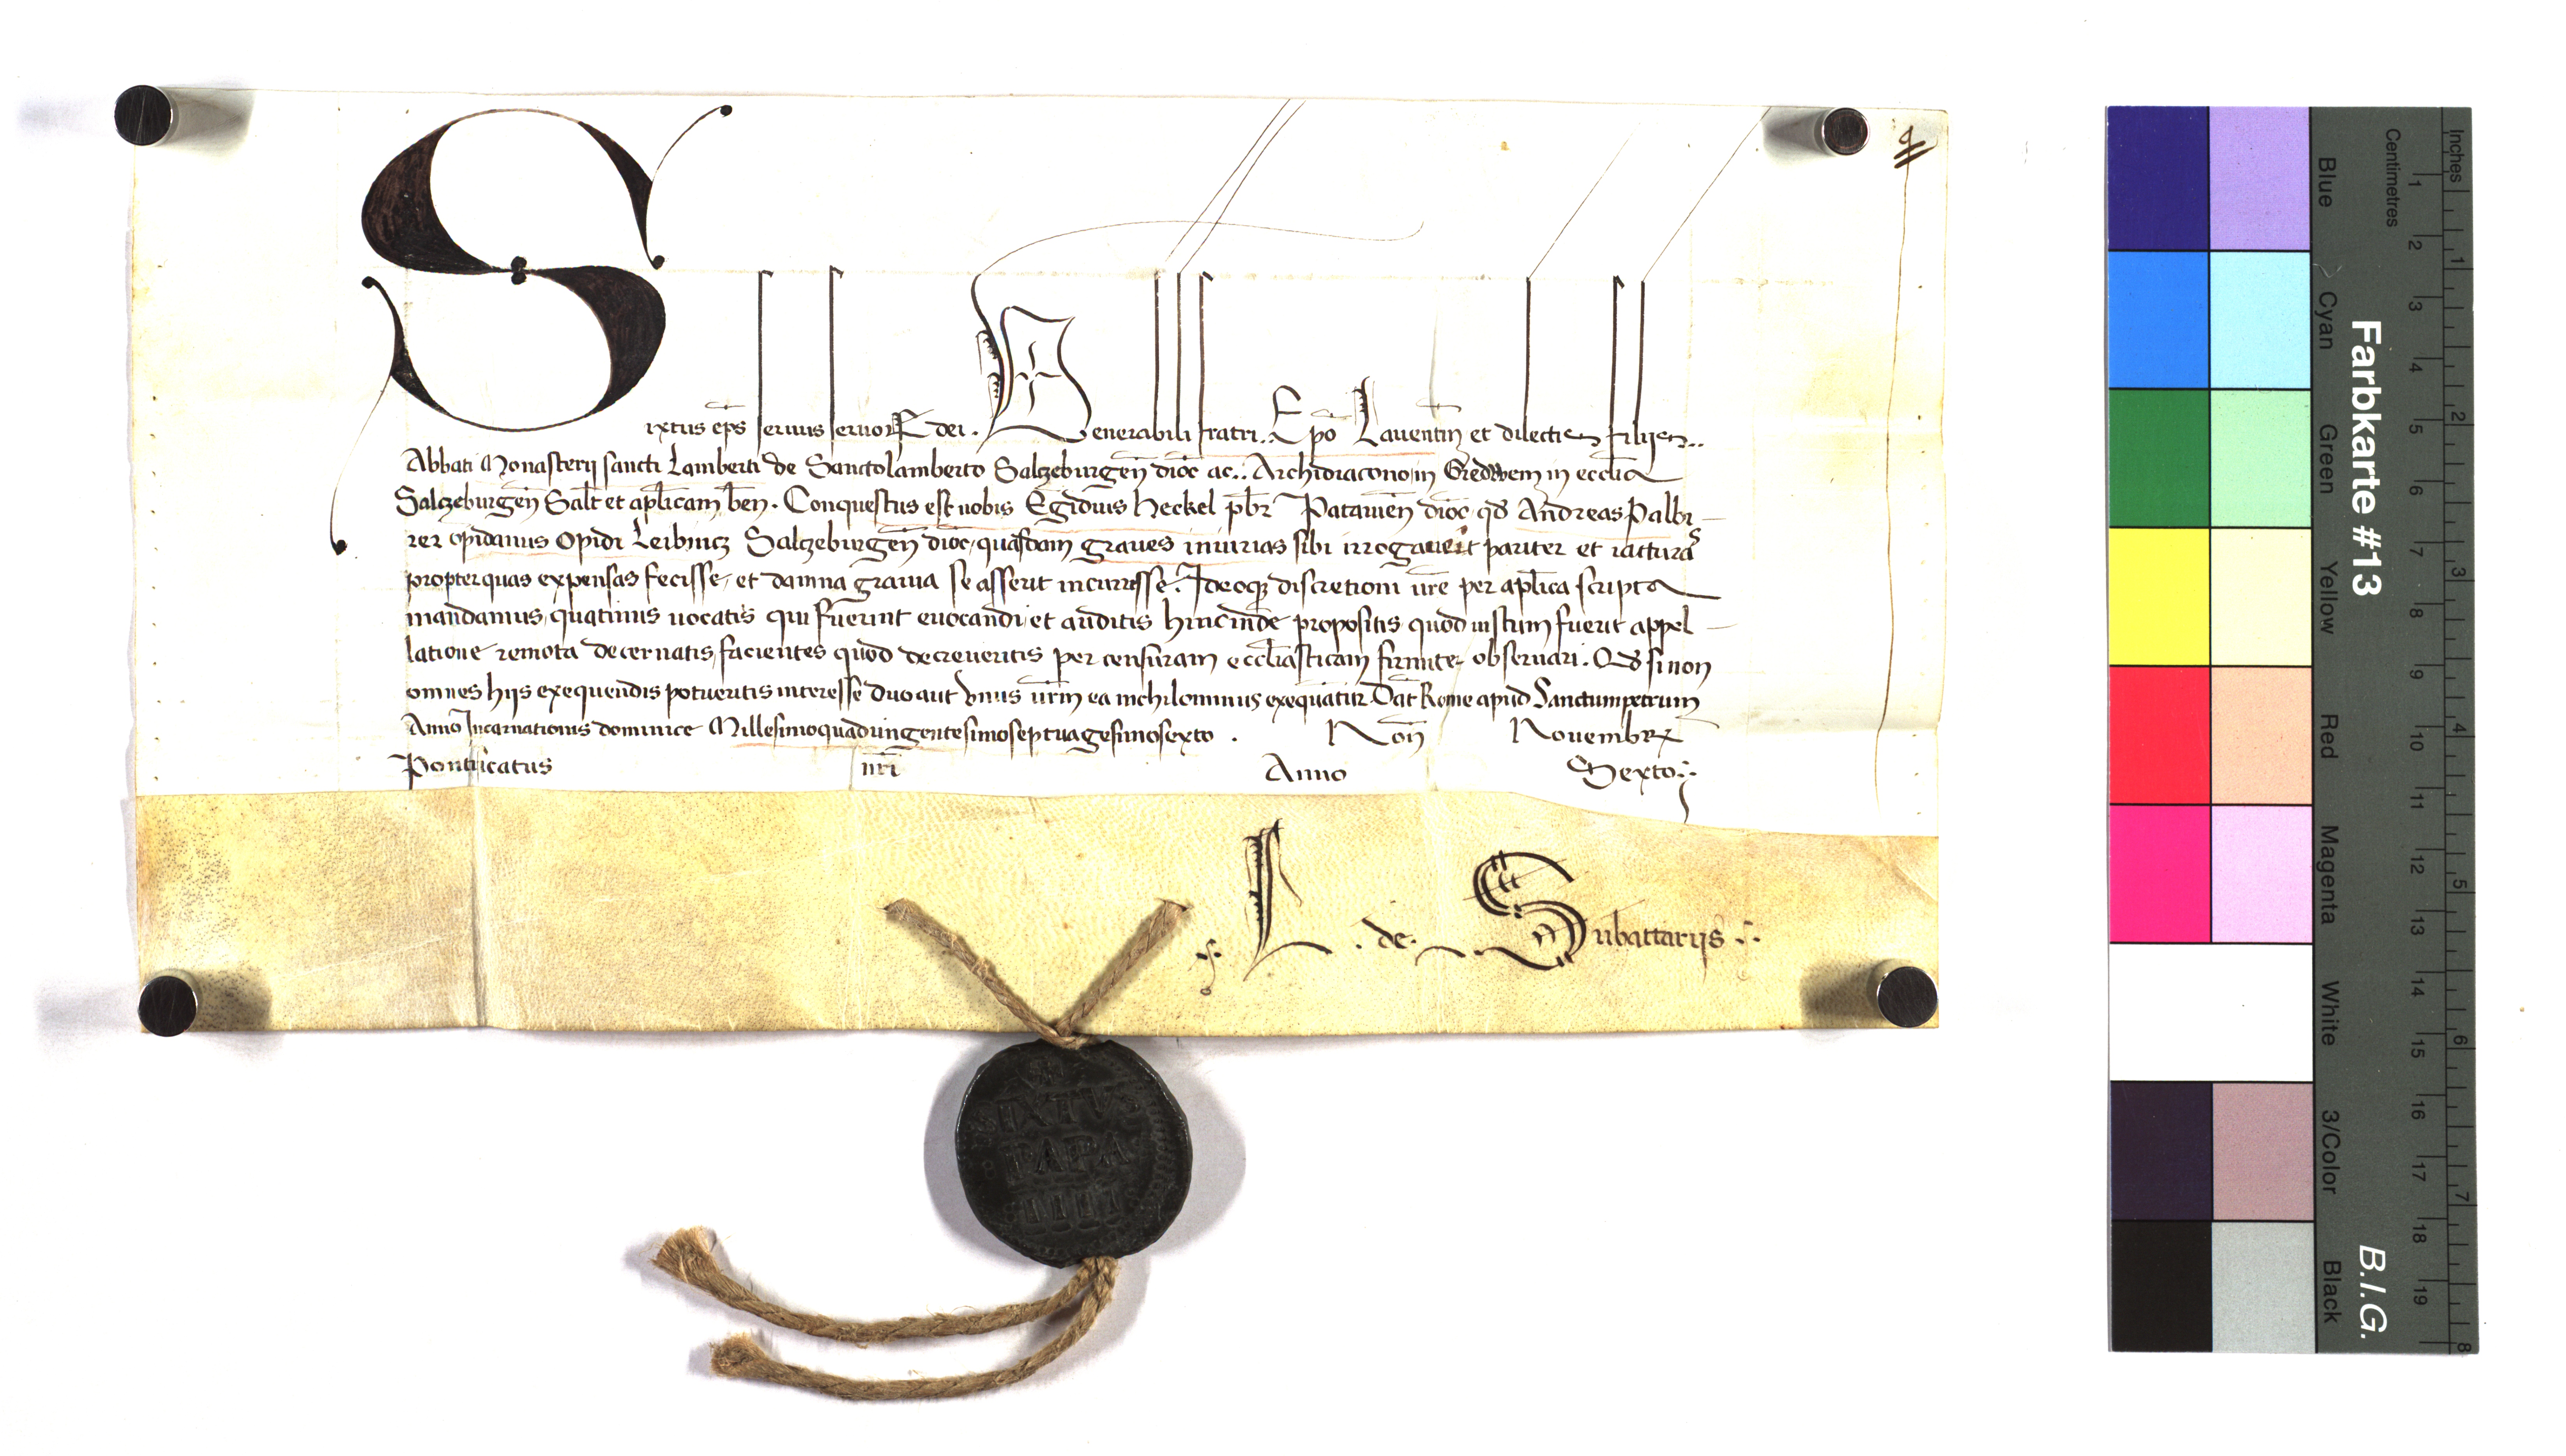 Sixtus ep̄s seruus seruoꝝ dei. Venerabili fratri. Ep̄o Lauentin̄ et dilectis filijs..
Abbati Monasterij sancti Lamberti de Sanctolamberto Salczeburgen̄ dioc̄ ac.. Archidiacono in Gredwem in eccl̄ia
Salczeburgen̄ Sal̄t et ap̄licam ben̄. Conquestus est nobis Egidius Heckel pb̄r Patauien̄ dioc̄ qd̄ Andreas Palbi
rer opidanus Opidi Leibnicz Salczeburgen̄ dioc̄, quasdam graues iniurias sibi irrogauerit pariter et iactura
propter quas expensas fecisse, et damna grauia se asserit incurrisse. Ideoqꝫ discretioni ur̄e per ap̄lica scripta
mandamus, quatinus uocatis qui fuerint euocandi, et auditis hincinde propositis quod iustum fuerit appel
latione remota decernatis, facientes quod decreueritis per censuram eccl̄iasticam firmiter obseruari. Qd̄ si non
omnes hijs exequendis potueritis interesse duo aut vnus ur̄m ea nichilominus exequatur. Dat̄ Rome apud Sanctumpetrum
Anno Incarnationis dominice Millesimoquadringentesimoseptuagesimosexto. Non̄ Nouembr̄
Pontificatus nr̄i Anno Sexto
L. de. Subattarijs
SIXTVS
PAPA
IIII
Farbkarte #13
B.I.G.
Inches 1 2 3 4 5 6 7 8
Centimetres 1 2 3 4 5 6 7 8 9 10 11 12 13 14 15 16 17 18 19
Blue Cyan Green Yellow Red Magenta White 3/Color Black